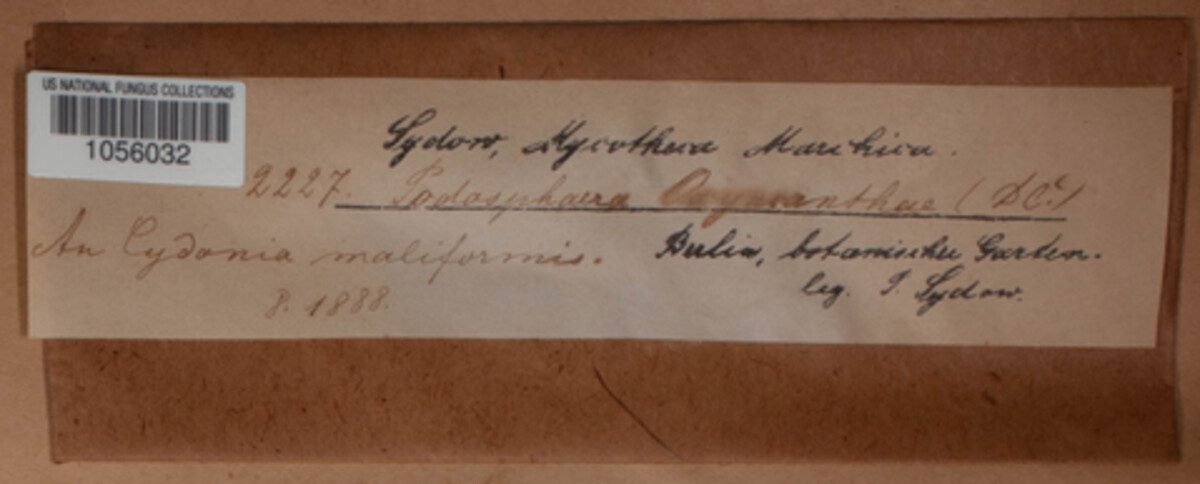 US NATIONAL FUNGUS COLLECTIONS
1056032
Sydow, Mycotheca Marchica.
2227. Podosphaera Oxyacanthae (DC.)
An Cydonia maliformis.
8. 1888.
Berlin, botanischer Garten.
leg. P. Sydow.